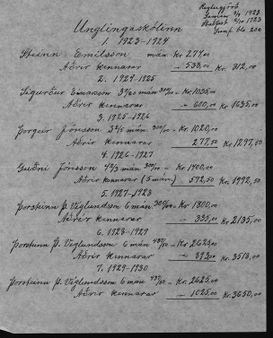 Unglingaskólinn
1. 1923-1924
Steinn Emilsson mán kr 274,00
Aðrir kennarar - 538,00 Kr. 812,00
2. 1924-1925
Sigurður Einarsson
Aðrir kennarar - 600,00 Kr. 1635,00
3. 1925-1926
Þorgeir Jónsson 3 4/5 mán. 300/00 - Kr. 1020,00
Aðrir kennarar - 277,50 Kr. 1297,50
4. 1926-1927
Guðni Jónsson 4 2/3 mán 300/00 - Kr. 1400,00
Aðrir kennarar (5 mán.) - 592,50 Kr. 1992,50
5. 1927-1928
Þorsteinn Þ. Víglundsson 6 mán 300/00 - Kr. 1800,00
Aðrir kennarar - 335,00 Kr. 2135,00
6. 1928-1929
Þorsteinn Þ. Víglundsson 6 mán - Kr. 2625,00
Aðrir kennarar - Kr. 3518,00
7. 1929-1930
Þorsteinn Þ. Víglundsson 6 mán - Kr. 2625,00
Aðrir kennarar - 1025,00 Kr. 3650,00